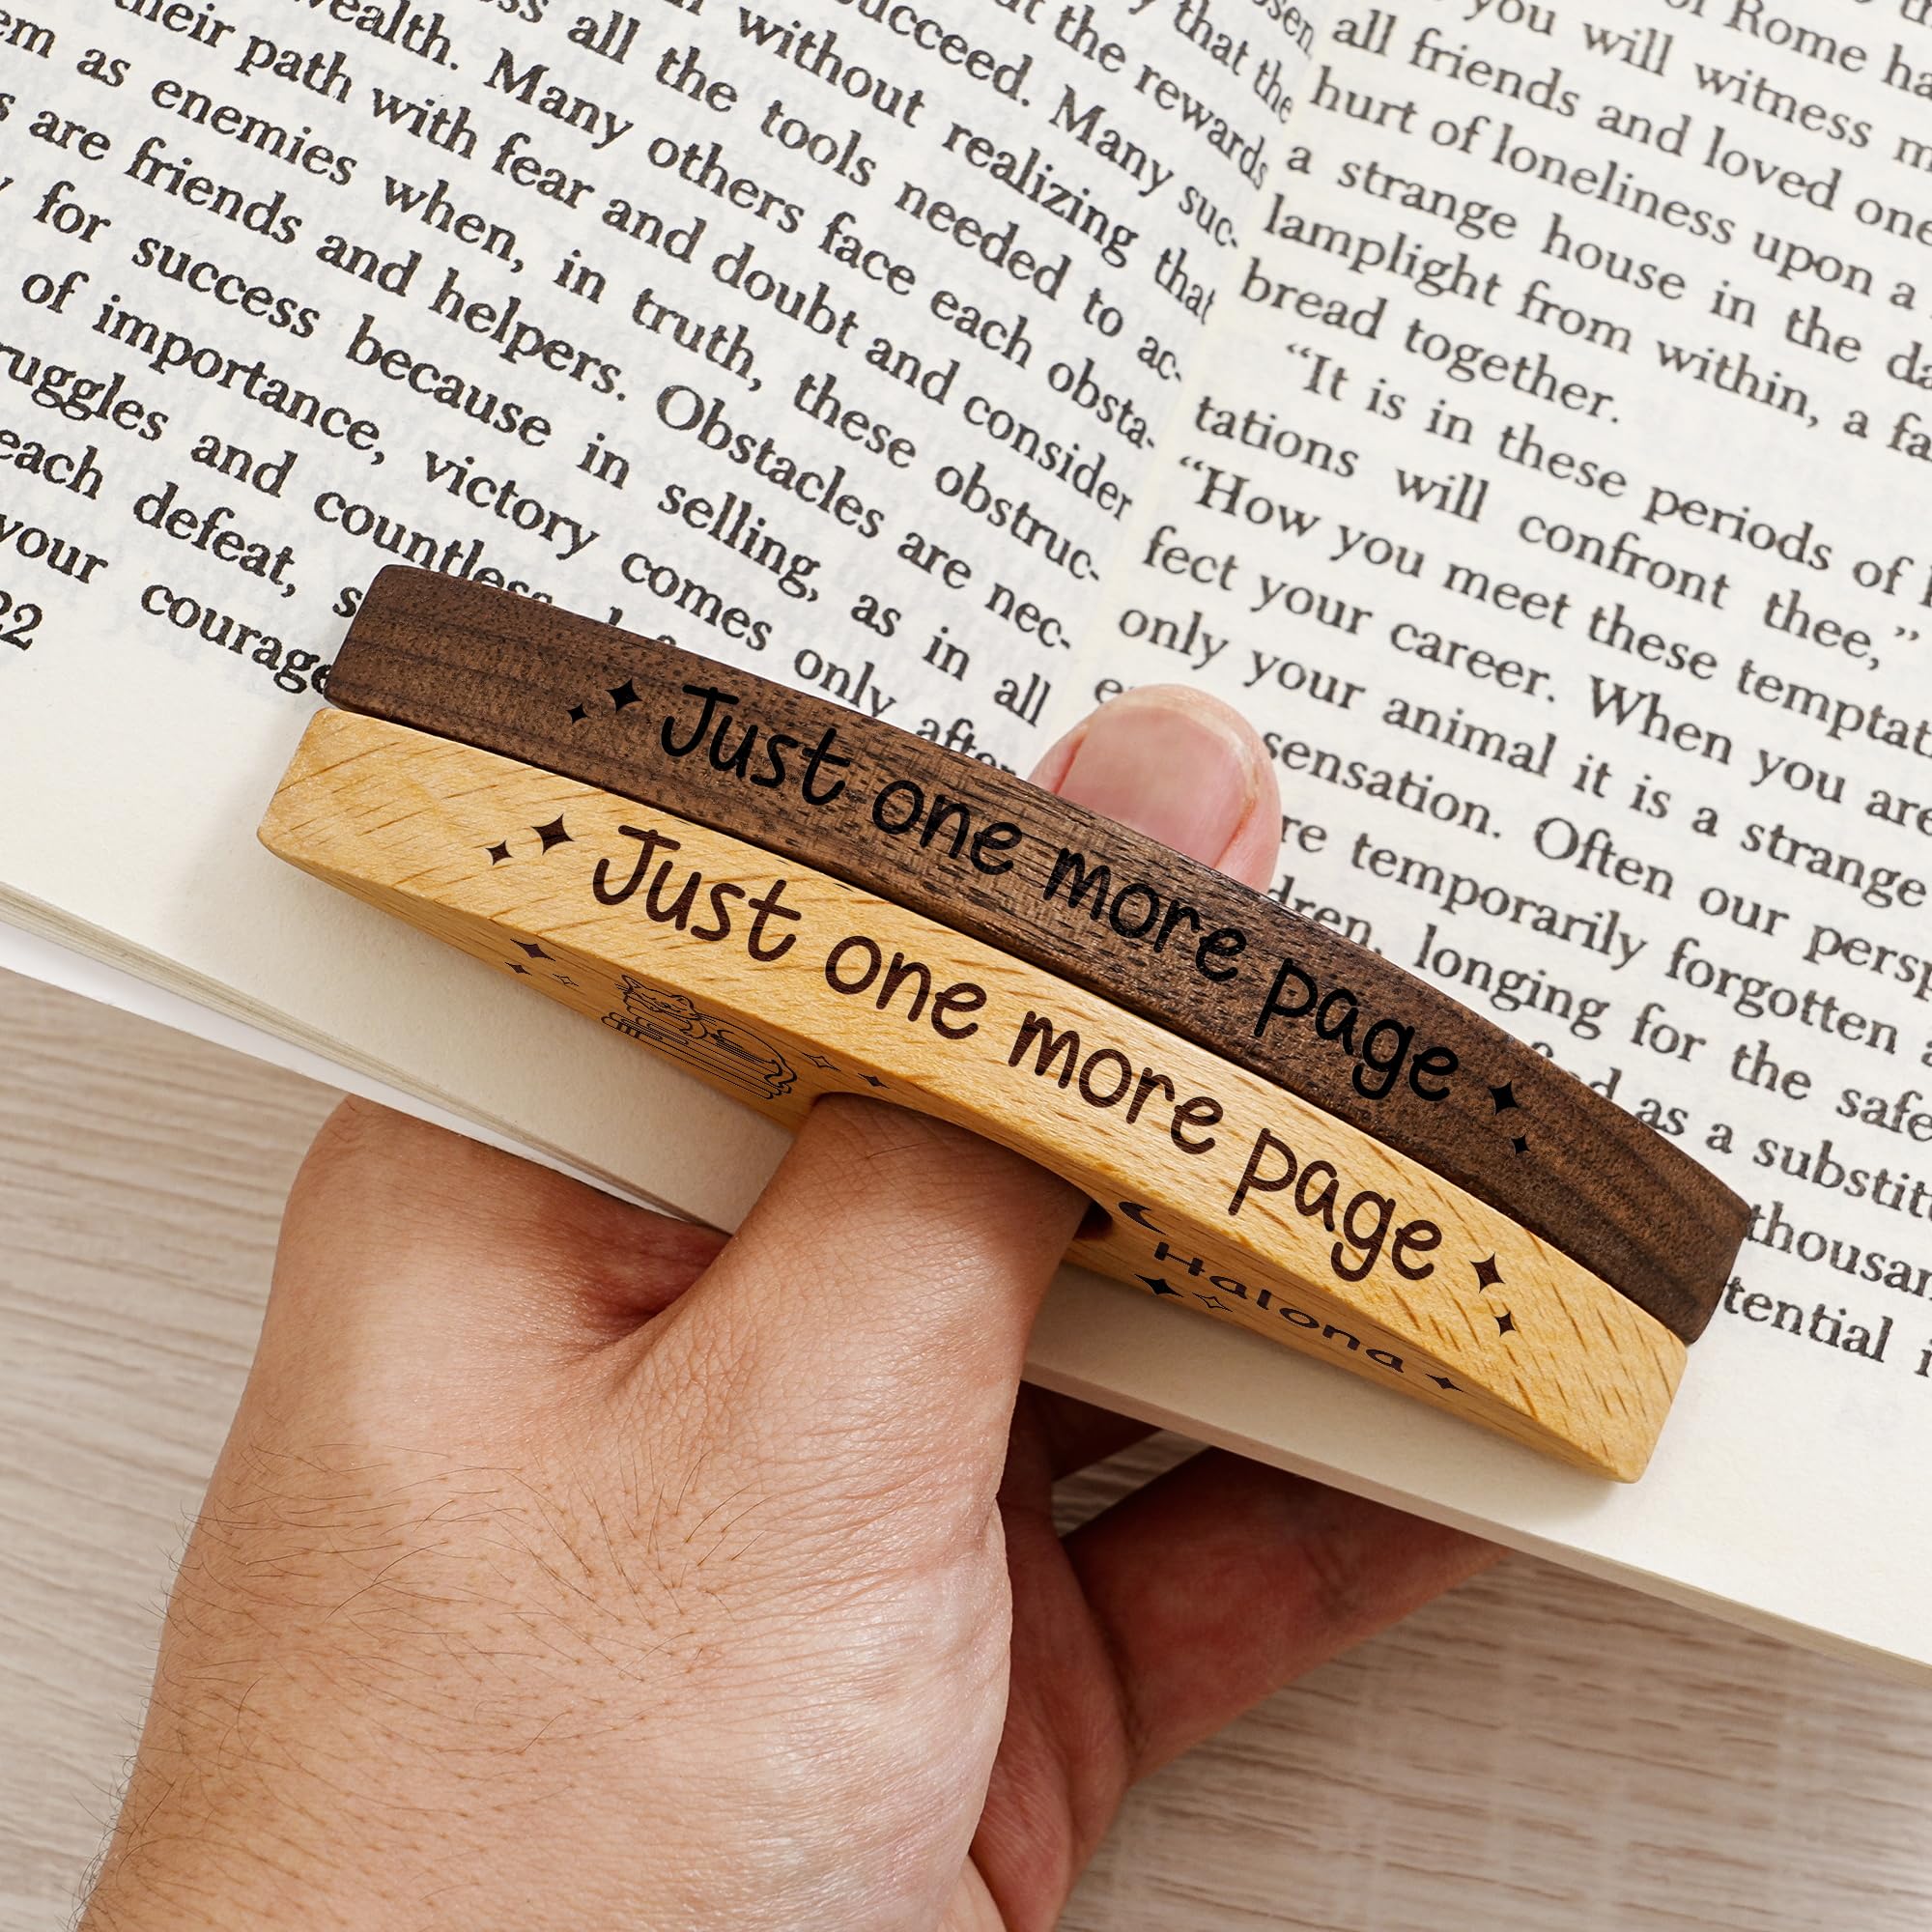 wealth. Many others face each obsta-
their path with fear and doubt and consider
em as enemies when, in truth, these obstruc-
are friends and helpers. Obstacles are nec-
for success because in selling, as in all
of importance, victory comes only after
ruggles and countless
each defeat,
your courage
22
you will witness
all friends and loved one
hurt of loneliness upon a
a strange house in the
lamplight from within, a
bread together.
“It is in these periods of
tations will confront thee,”
“How you meet these temptat
fect your career. When you are
only your animal it is a strange
sensation. Often our persp
re temporarily forgotten
dren, longing for the safe
as a substit
thousan
tential
✦ Just one more page ✦
✦ Just one more page ✦
Halona